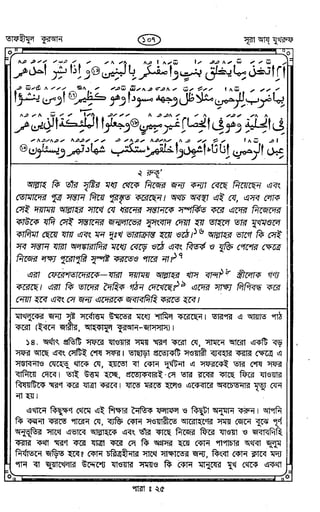 তাফহীমুল কুরআন
১০৭
সূরা আয্ যুখরুফ
اَمِ اتَّخَذَ مِمَّا يَخْلُقُ بَنٰتٍ وَّاَصْفٰىكُمْ بِالْبَنِيْنَ ﴿١٦﴾ وَاِذَا بُشِّرَ اَحَدُهُمْ
بِمَا ضَرَبَ لِلرَّحْمٰنِ مَثَلًا ظَلَّ وَجْهُهٗ مُسْوَدًّا وَّهُوَ كَظِيْمٌ ﴿١٧﴾ اَوَمَنْ يُّنَشَّؤُا
فِى الْحِلْيَةِ وَهُوَ فِى الْخِصَامِ غَيْرُ مُبِيْنٍ ﴿١٨﴾ وَجَعَلُوا الْمَلٰٓئِكَةَ الَّذِيْنَ هُمْ
عِبٰدُ الرَّحْمٰنِ اِنَاثًا اَشَهِدُوْا خَلْقَهُمْ سَتُكْتَبُ شَهَادَتُهُمْ وَيُسْئَلُوْنَ ﴿١٩﴾
২ রুকূ'
আল্লাহ কি তাঁর সৃষ্টির মধ্য থেকে নিজের জন্য কন্যা বেছে নিয়েছেন এবং
তোমাদের পুত্র সন্তান দিয়ে পুরস্কৃত করেছেন। অথচ অবস্থা এই যে, এসব লোক
সেই দয়াময় আল্লাহর সাথে যে ধরনের সন্তানকে সম্পর্কিত করে এদের নিজেদের
কাউকে যদি সেই সন্তানের জন্মলাভের সুসংবাদ দেয়া হয় তাহলে তার মুখমণ্ডলে
কালিমা ছেয়ে যায় এবং মন দুঃখ ভারাক্রান্ত হয়ে ওঠে।১৬ আল্লাহর ভাগে কি সেই
সব সন্তান যারা অলঙ্কারাদির মধ্যে বেড়ে ওঠে এবং বিতর্ক ও যুক্তি পেশের ক্ষেত্রে
নিজের লক্ষ্য পুরোপুরি সুস্পষ্ট করতেও পারে না?১৭
এরা ফেরেশতাদেরকে—যারা দয়াময় আল্লাহর খাস বান্দা১৮ স্ত্রীলোক গণ্য
করেছে। এরা কি তাদের দৈহিক গঠন দেখেছে?১৯ এদের সাক্ষ্য লিপিবদ্ধ করে
নেয়া হবে এবং সে জন্য এদেরকে জবাবদিহি করতে হবে।
মাখলুকের জন্য সৃষ্ট সর্বোত্তম উম্মতের মধ্যে শামিল করেছেন। তারপর এ আয়াত পাঠ
করো (ইবনে জারীর, আহকামুল কুরআন-জাসসাস)।
১৪. অর্থাৎ প্রতিটি সফরে যাওয়ার সময় স্মরণ করো যে, সামনে আরো একটি বড়
সফর আছে এবং সেটিই শেষ সফর। তাছাড়া প্রত্যেকটি সওয়ারী ব্যবহার করার ক্ষেত্রে এ
সম্ভাবনাও যেহেতু থাকে যে, হয়তো বা কোন দুর্ঘটনা এ সফরকেই তার শেষ সফর
বানিয়ে দেবে। তাই উত্তম হচ্ছে, প্রত্যেকবারই সে তার রবের কাছে ফিরে যাওয়ার
বিষয়টিকে স্মরণ করে যাত্রা করবে। যাতে মরতে হলেও একেবারে অবচেতনার মৃত্যু যেন
না হয়।
এখানে কিছুক্ষণ থেমে এই শিক্ষার নৈতিক ফলাফল ও কিছুটা অনুমান করুন। আপনি
কি কল্পনা করতে পারেন যে, ব্যক্তি কোন সওয়ারীতে আরোহণের সময় জেনে বুঝে পূর্ণ
অনুভূতির সাথে এভাবে আল্লাহকে এবং তাঁর কাছে নিজের ফিরে যাওয়া ও জবাবদিহি
করার কথা স্মরণ করে যাত্রা করে সে কি অগ্রসর হয়ে কোন পাপাচার অথবা জুলুম
নির্যাতনে জড়িত হবে? কোন চরিত্রহীনার সাথে সাক্ষাতের জন্য, কিংবা কোন ক্লাবে মদ্য
পান বা জুয়াখেলার উদ্দেশ্যে যাওয়ার সময়ও কি কোন মানুষের মুখ থেকে একথা
পারা : ২৫